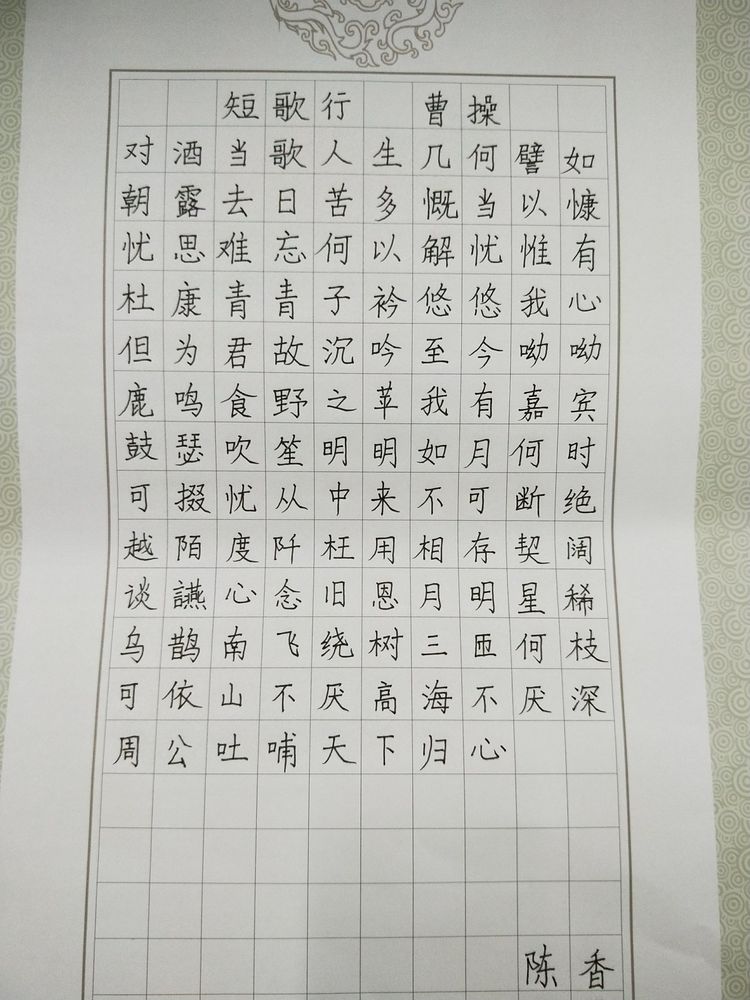 短歌行 曹操
对酒当歌人生几何譬如
朝露去日苦多慨当以慷
忧思难忘何以解忧惟有
杜康青青子衿悠悠我心
但为君故沉吟至今呦呦
鹿鸣食野之苹我有嘉宾
鼓瑟吹笙明明如月何时
可掇忧从中来不可断绝
越陌度阡枉用相存契阔
谈讌心念旧恩月明星稀
乌鹊南飞绕树三匝何枝
可依山不厌高海不厌深
周公吐哺天下归心
陈香